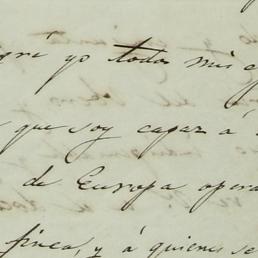 yo todos mis
que soy capaz á
de Europa opera
finca, y á quienes se